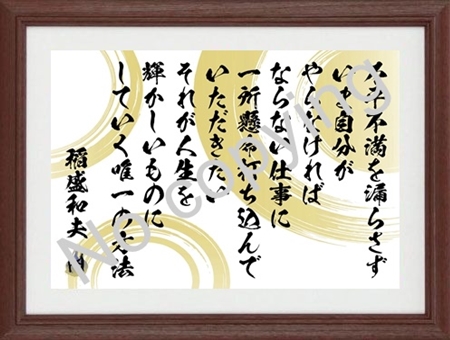 不平不満を漏らさず
いま自分が
やらなければ
ならない仕事に
一所懸命打ち込んで
いただきたい
それが人生を
輝かしいものに
していく唯一の方法
稲盛和夫
No copying